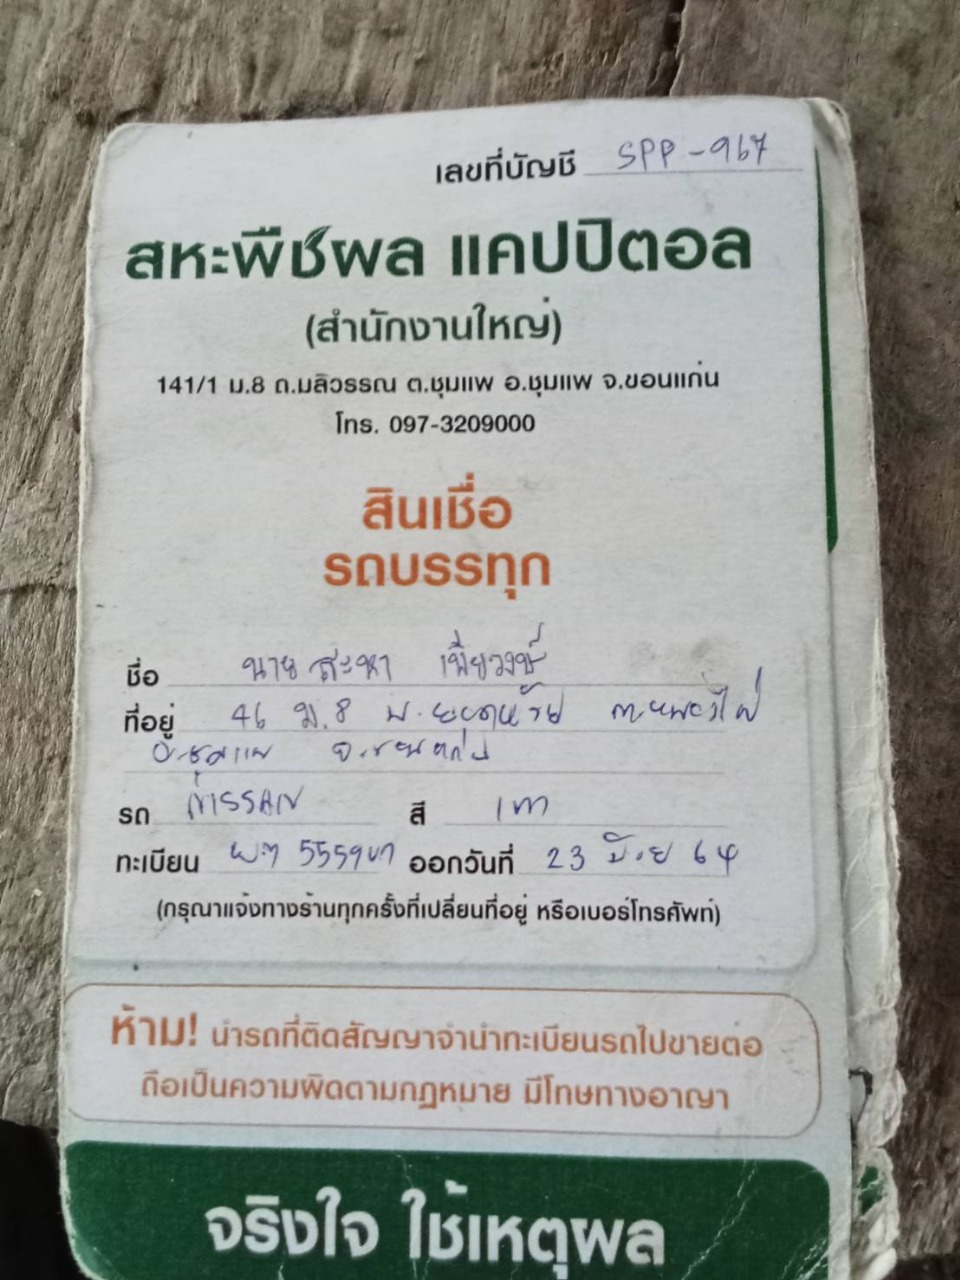 เลขที่บัญชี SPP-967
สหะพืชผล แคปปิตอล
(สำนักงานใหญ่)
141/1 ม.8 ถ.มลิวรรณ ต.ชุมแพ อ.ชุมแพ จ.ขอนแก่น
โทร. 097-3209000
สินเชื่อ
รถบรรทุก
ชื่อ นาย สะหา เพียวงษ์
ที่อยู่ 46 ม.8 บ. ต.หนองไผ่
อ.ชุมแพ จ.ขอนแก่น
รถ สี เทา
ทะเบียน ผฯ 5559 ขก ออกวันที่ 23 มิ.ย 64
(กรุณาแจ้งทางร้านทุกครั้งที่เปลี่ยนที่อยู่ หรือเบอร์โทรศัพท์)
ห้าม! นำรถที่ติดสัญญาจำนำทะเบียนรถไปขายต่อ
ถือเป็นความผิดตามกฎหมาย มีโทษทางอาญา
จริงใจ ใช้เหตุผล